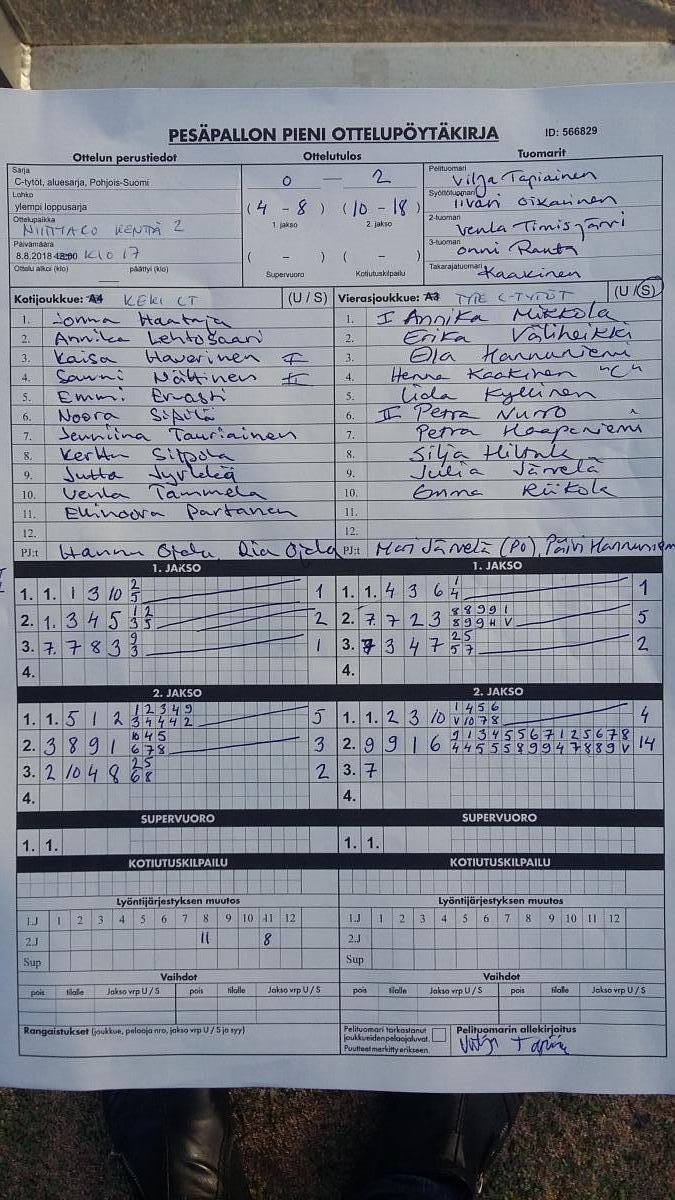 PESÄPALLON PIENI OTTELUPÖYTÄKIRJA ID: 566829
Ottelun perustiedot Ottelutulos Tuomarit
Sarja
C-tytöt, aluesarja, Pohjois-Suomi
Lohko
ylempi loppusarja
Ottelupaikka
KENTÄ 2
Päivämäärä
8.8.2018 18:00 KLO 17
Ottelu alkoi (klo) päättyi (klo)
0 — 2
(4 - 8) (10 - 18)
1. jakso 2. jakso
( - ) ( - )
Supervuoro Kotiutuskilpailu
Pelituomari Vilja Tapiainen
Syöttötuomari Iivari Oikarinen
2-tuomari Venla Timisjärvi
3-tuomari Onni Ranta
Takarajatuomari Kaakinen
Kotijoukkue: A4 KEKI CT (U / S)
1. Jonna Haataja
2. Annika Lehtosaari
3. Kaisa Haverinen I
4. Sanni Nättinen II
5. Emmi Ervasti
6. Noora Sipilä
7. Jenniina Tauriainen
8. Kerttu Sirpola
9. Jutta Jyrkkä
10. Venla Tammela
11. Ellinoora Partanen
12.
PJ:t Hannu Ojala, Ria Ojala
Vierasjoukkue: A3 TYPE C-TYTÖT (U / S)
1. I Annika Mikkola
2. Erika Väliheikki
3. Ella Hannuniemi
4. Henna Kaakinen "C"
5. Iida Kyllinen
6. II Petra Nurro
7. Petra Haapaniemi
8. Silja Hiltula
9. Julia Järvelä
10. Emma Riikola
11.
12.
PJ:t Mari Järvelä (PO), Päivi Hannuniemi
1. JAKSO 1. JAKSO
1. 1. 1 3 10 2/5 1
2. 1. 3 4 5 1/3 2/5 2
3. 7. 7 8 3 9/3 1
4.
1. 1. 4 3 6 1/4 1
2. 7. 7 2 3 8/8 8/9 9/9 9/H 1/V 5
3. 7 3 4 7 2/5 5/7 2
4.
2. JAKSO 2. JAKSO
1. 1. 5 1 2 1/3 2/4 3/4 4/4 9/2 5
2. 3 8 9 1 10/6 4/7 5/8 3
3. 2 10 4 8 2/6 5/8 2
4.
1. 1. 2 3 10 1/V 4/10 5/7 6/8 4
2. 9 9 1 6 9/4 1/4 3/5 4/5 5/5 5/8 6/9 7/9 1/4 2/7 5/8 6/8 7/9 8/V 14
3. 7
4.
SUPERVUORO SUPERVUORO
1. 1. 1. 1.
KOTIUTUSKILPAILU KOTIUTUSKILPAILU
Lyöntijärjestyksen muutos Lyöntijärjestyksen muutos
1.J 1 2 3 4 5 6 7 8 9 10 11 12 1.J 1 2 3 4 5 6 7 8 9 10 11 12
2.J 11 8 2.J
Sup Sup
Vaihdot Vaihdot
pois tilalle Jakso vrp U / S pois tilalle Jakso vrp U / S pois tilalle Jakso vrp U / S pois tilalle Jakso vrp U / S
Rangaistukset (joukkue, pelaaja nro, jakso vrp U / S ja syy)
Pelituomari tarkastanut
joukkueiden pelaajaluvat.
Puutteet merkitty erikseen.
Pelituomarin allekirjoitus